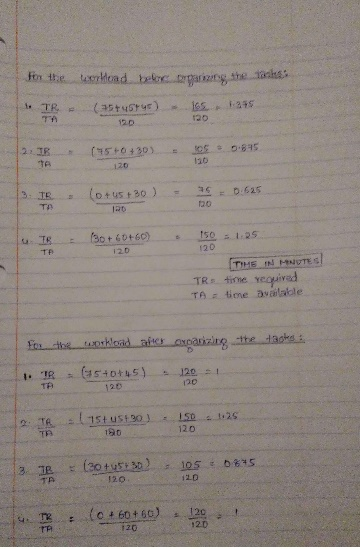 For the workload before organizing the tasks:
1. TR/TA = (75+45+45)/120 = 165/120 = 1.375
2. TR/TA = (75+0+30)/120 = 105/120 = 0.875
3. TR/TA = (0+45+30)/120 = 75/120 = 0.625
4. TR/TA = (30+60+60)/120 = 150/120 = 1.25
TIME IN MINUTES
TR = time required
TA = time available
For the workload after organizing the tasks:
1. TR/TA = (75+0+45)/120 = 120/120 = 1
2. TR/TA = (75+45+30)/120 = 150/120 = 1.25
3. TR/TA = (30+45+30)/120 = 105/120 = 0.875
4. TR/TA = (0+60+60)/120 = 120/120 = 1